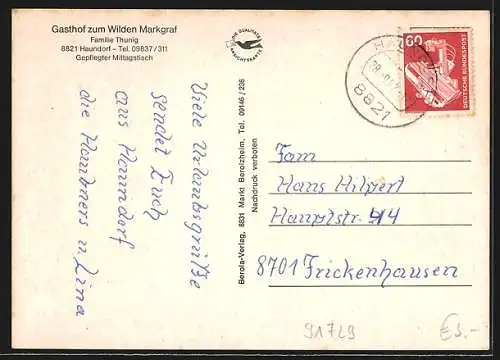 Gasthof zum Wilden Markgraf
Familie Thunig
8821 Haundorf – Tel. 09837/311
Gepflegter Mittagstisch
Viele Urlaubsgrüße
sendet Euch
aus Haundorf
die Hambners u. Lina
Berola-Verlag, 8831 Markt Berolzheim, Tel. 09146 / 236
Nachdruck verboten
8821
60
DEUTSCHE BUNDESPOST
Fam
Hans Hilpert
Hauptstr. 44
8701 Frickenhausen
91729
€3.-